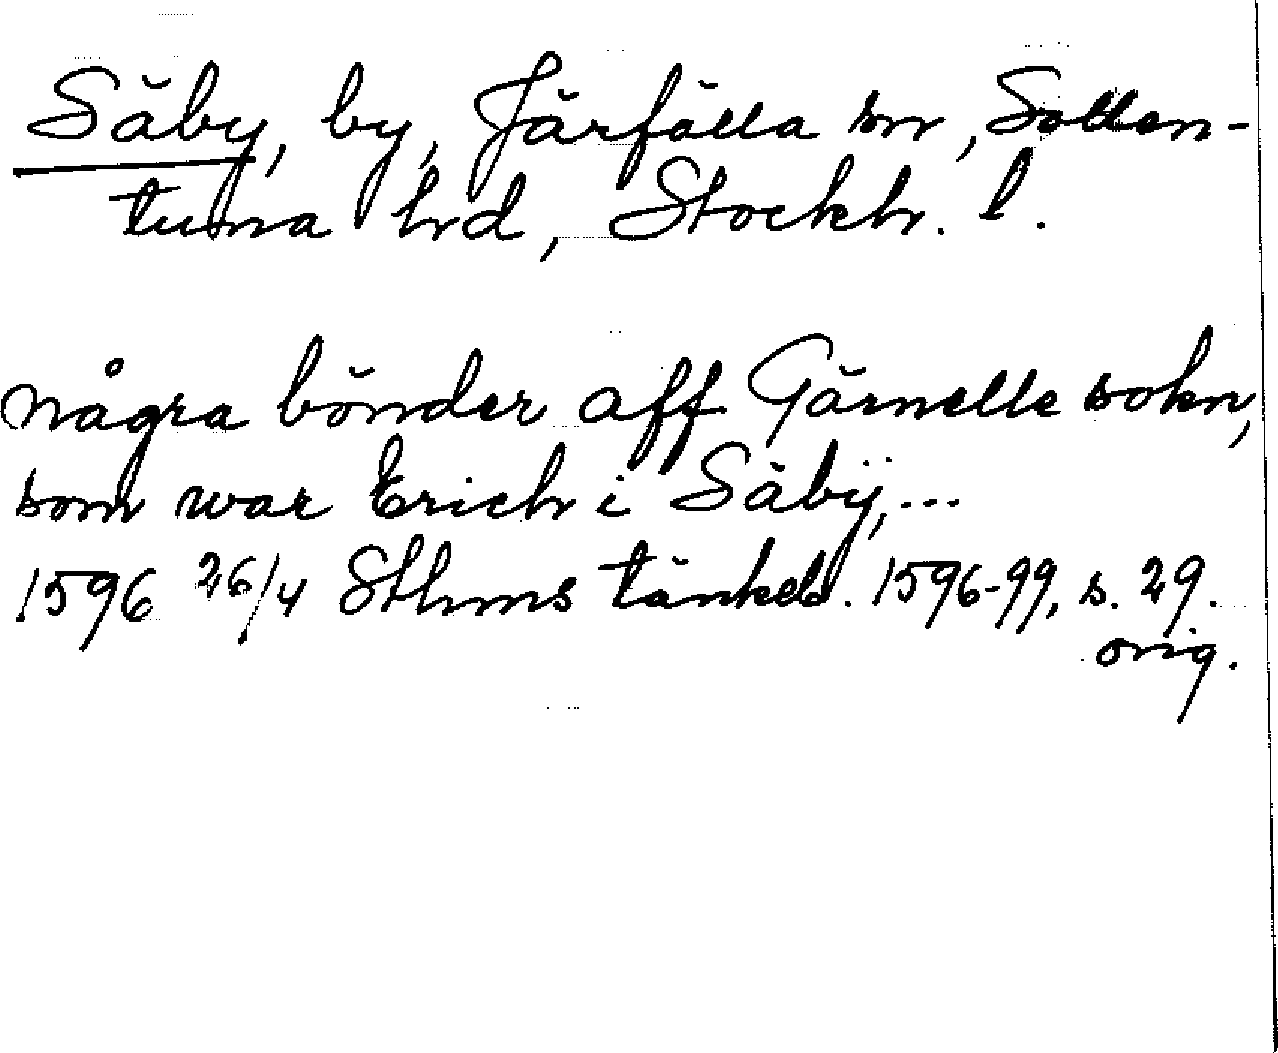 Säby, by, Järfälla sn, Sollen-
tuna hd, Stockh. l.
några bönder aff Gärnelle sokn,
som war Erich i Säbÿ, ...
1596 26/4 Sthms tänkeb. 1596-99, s. 29.
orig.